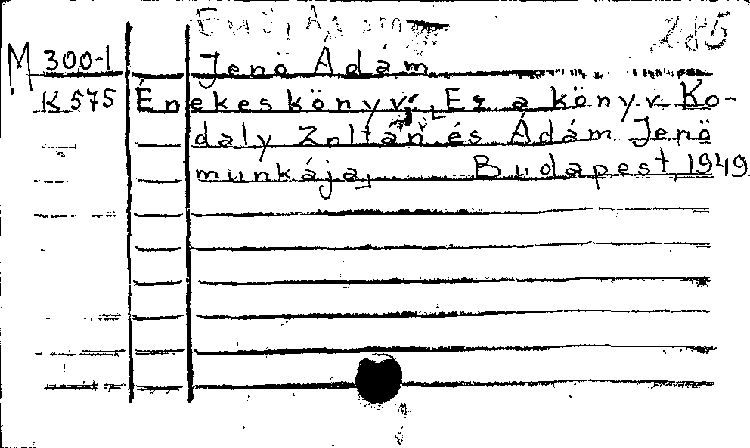 285
M 300-1 Jenö Ádám
K 575 Énekeskönyv. Ez a könyv Ko-
daly Zoltán és Ádám Jenö
munkája, Budapest, 1949